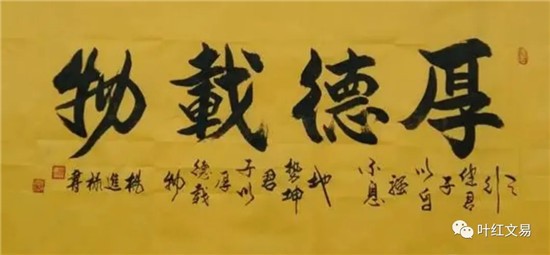 厚德載物
天行
健君
子
以自
强
不息
地
势坤
君
子以
厚
德载
物
楊
進
書
叶红文易